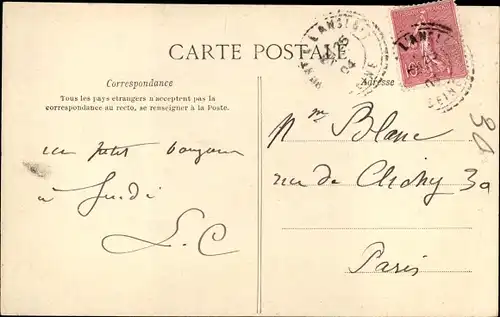 CARTE POSTALE
Correspondance
Tous les pays étrangers n'acceptent pas la
correspondance au recto, se renseigner à la Poste.
un petit bonjour
à Jeudi
L. C
Adresse
Mme Blanc
rue de Clichy 39
Paris